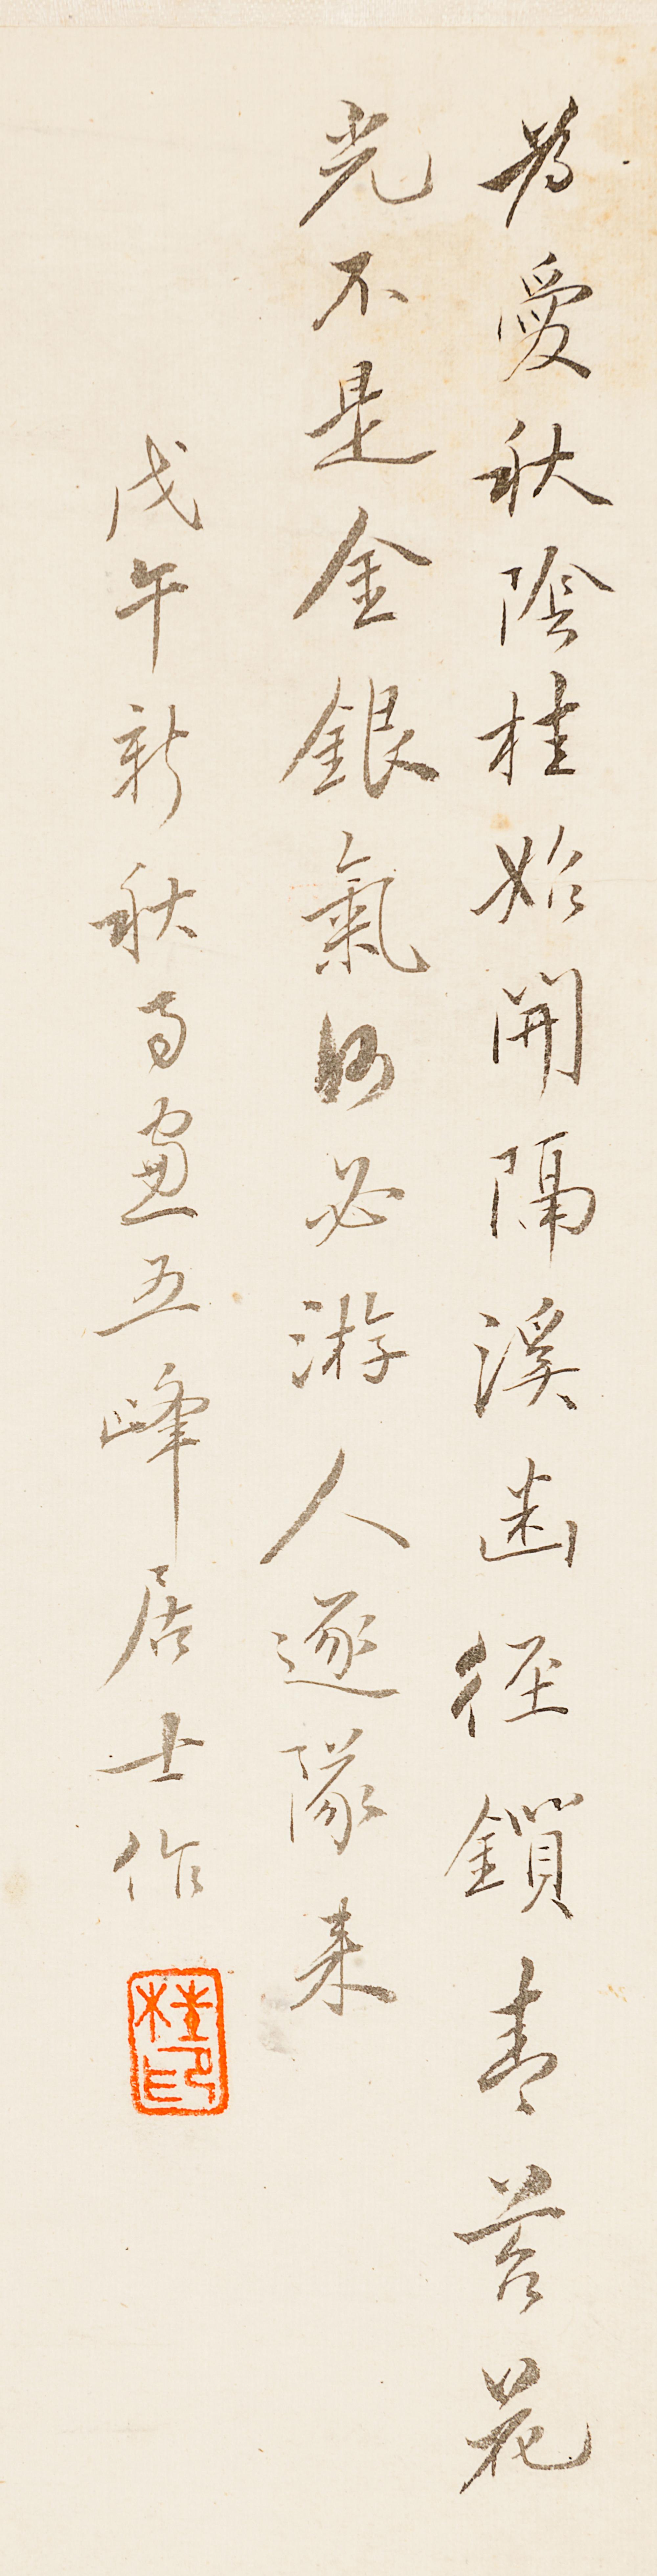 為愛秋陰桂始開隔溪幽徑鎖青苔花
光不是金銀氣何必游人逐隊来
戊午新秋雨窗五峰居士作
桂印